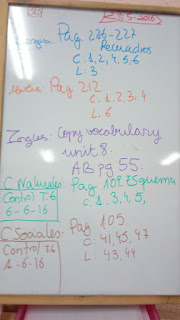 Pag 226-227
Recuadros
C: 1, 2, 4, 5, 6
L: 3
Mates: Pag 212
C: 1, 2, 3, 4
L: 6
Ingles: Copy vocabulary
unit 8.
AB pg 55.
C Naturales: Pag 109 Esquema
Control T.6
C. 1, 3, 4, 5,
6-6-16
C Sociales: Pag 105
Control T.6
C: 41, 45, 47
1-6-16
L: 43, 49